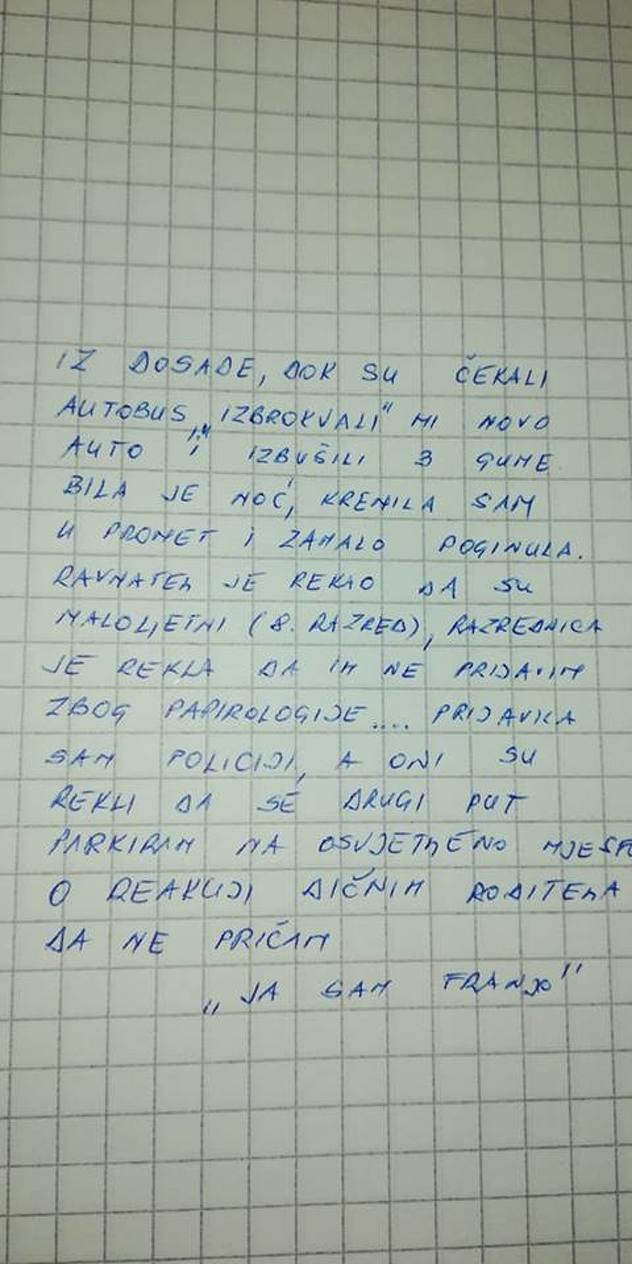 IZ DOSADE, DOK SU ČEKALI
AUTOBUS „IZBROKVALI" MI NOVO
AUTO I IZBUŠILI 3 GUME
BILA JE NOĆ, KRENILA SAM
U PROMET I ZAMALO POGINULA.
RAVNATELJ JE REKAO DA SU
MALOLJETNI (8. RAZRED), RAZREDNICA
JE REKLA DA IH NE PRIJAVIM
ZBOG PAPIROLOGIJE.... PRIJAVILA
SAM POLICIJI, A ONI SU
REKLI DA SE DRUGI PUT
PARKIRAM NA OSVJETLJENO
O REAKCIJI DIČNIH RODITELJA
DA NE PRIČAM
„JA SAM FRANJO"